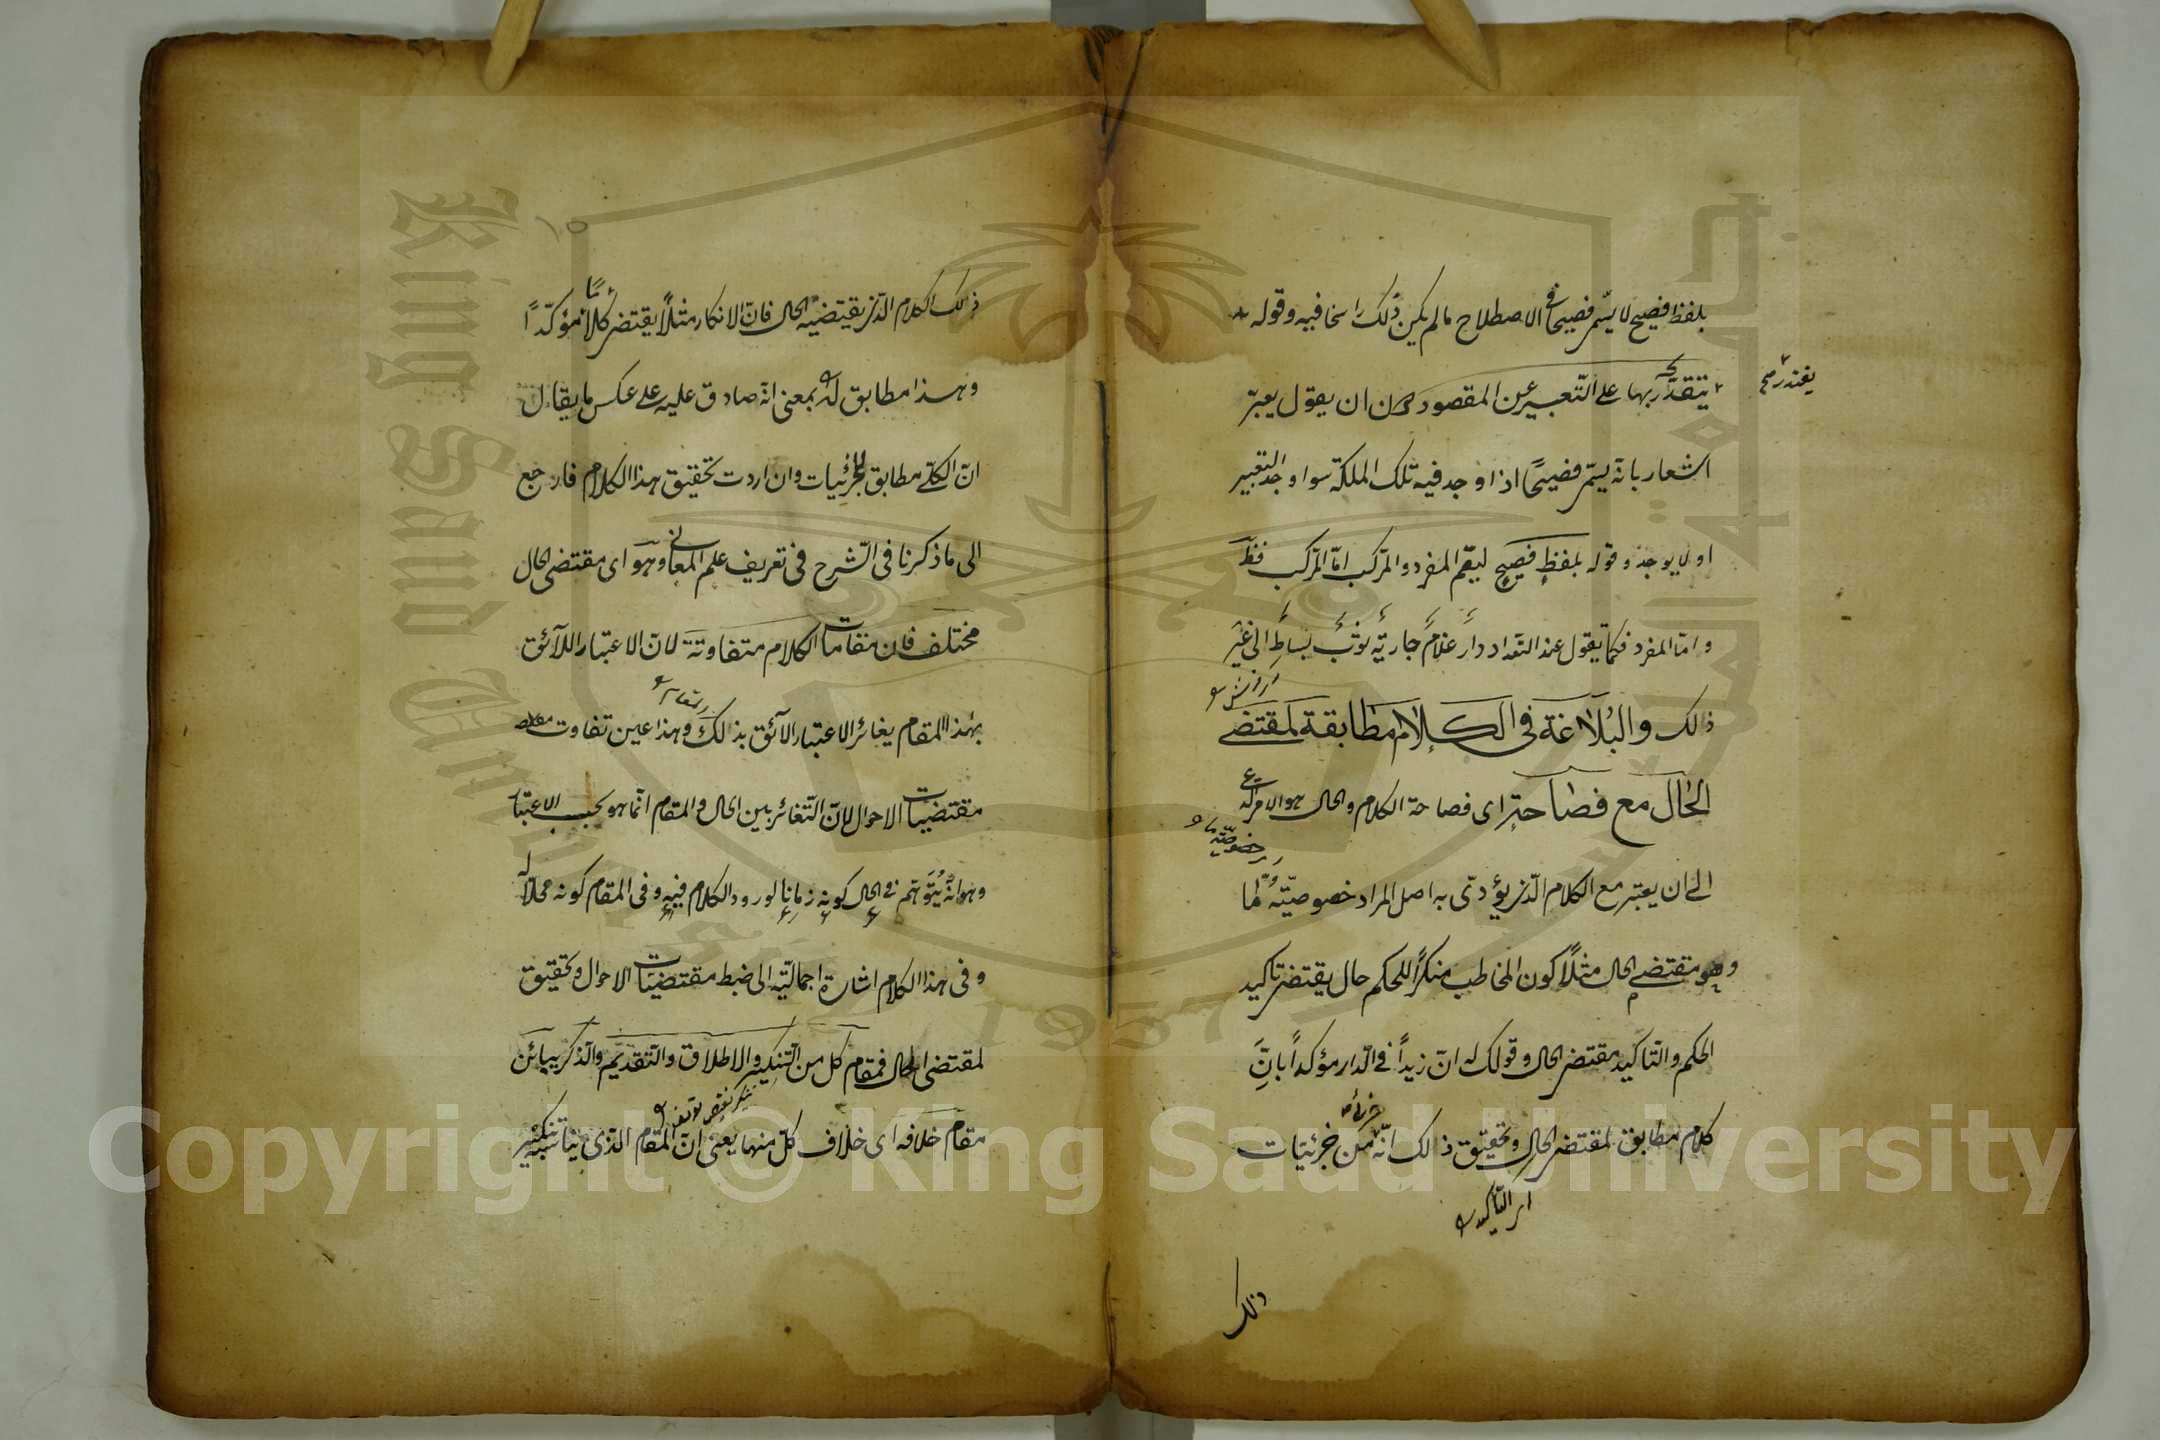 بلفظ فصيح لا يسمى فصيحا في الاصطلاح مالم يكن ذلك راسخا فيه وقوله
يقتدر بها على التعبير عن المقصود دون ان يقول يعبر
اشعار بانه يسمى فصيحًا اذا وجد فيه تلك الملكة سوا وجد التعبير
او لا يوجد وقوله بلفظٍ فصيحٍ ليعمّ المفرد والمركب امّا المركب فظ
وامّا المفرد فكما يقول عند التعداد دار غلام جارية ثوب بساط الى غير
ذالك والبلاغة في الكلام مطابقة لمقتضى
الحال مع فصاحته اى فصاحة الكلام والحال هو الامر الداعى
الى ان يعتبر مع الكلام الذى يؤدى به اصل المراد خصوصيّة مّا
وهو مقتضى الحال مثلًا كون المخاطب منكرًا للحكم حال يقتضى تاكيد
الحكم والتاكيد مقتضى الحال وقولك له انّ زيداً في الدار مؤكداً بانّ
كلام مطابق لمقتضى الحال وتحقيق ذالك انّه من جزئيات
اى التاكيد
ذلك
ذالك الكلام الّذى يقتضيه الحال فانّ الانكار مثلًا يقتضى كلامًا مؤكّدًا
وهذا مطابق له بمعنى انه صادق عليه على عكس ما يقال
انّ الكلّى مطابق للجزئيات وان اردت تحقيق هذا الكلام فارجع
الى ما ذكرنا فى الشرح فى تعريف علم المعانى وهو اى مقتضى الحال
مختلف فان مقامات الكلام متفاوتة لانّ الاعتبار اللائق
بهذا المقام يغائر الاعتبار الآئق بذالك وهذا عين تفاوت
مقتضيات الاحوال لانّ التغائر بين الحال والمقام انّما هو بحسب الاعتبار
وهو انّه يُتَوهّم فى الحال كونه زمانا لورود الكلام فيه وفى المقام كونه محلا له
وفى هذا الكلام اشارة اجماليّة الى ضبط مقتضيات الاحوال وتحقيق
لمقتضى الحال فمقام كل من التنكير والاطلاق والتقديم والذكر يبائن
مقام خلافه اى خلاف كلّ منها يعنى انّ المقام الذى يناسبه تنكير